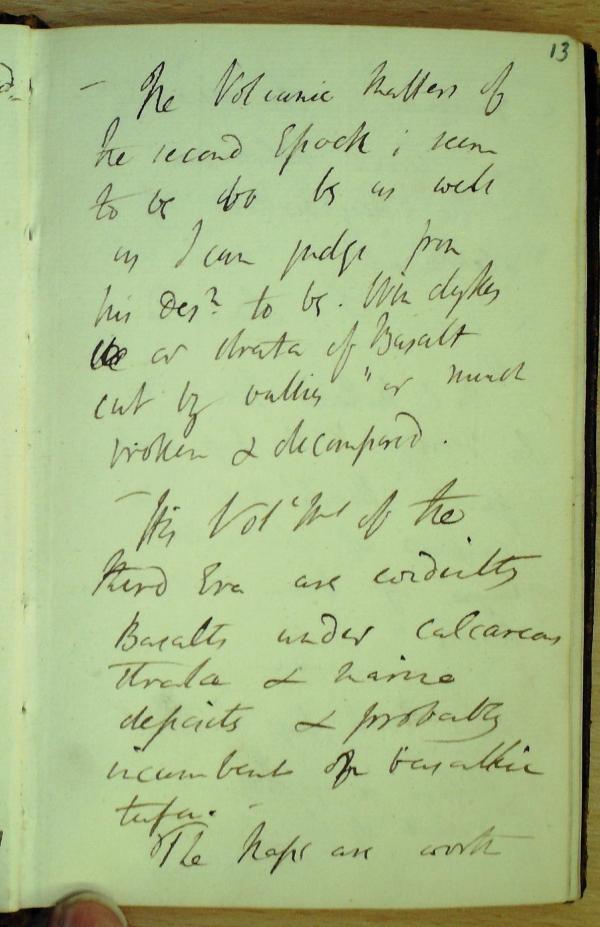 13
— The Volcanic Matters of
the second Epoch; seem
to be also be as well
as I can judge from
his Desn to be. Win dykes
or strata of Basalt
cut by vallies " or much
broken & decomposed.
— His Volc Mrs of the
third Era are evidently
Basalts under calcareous
strata & marine
deposits & probably
incumbent on basaltic
tufa. -
The Maps are worth